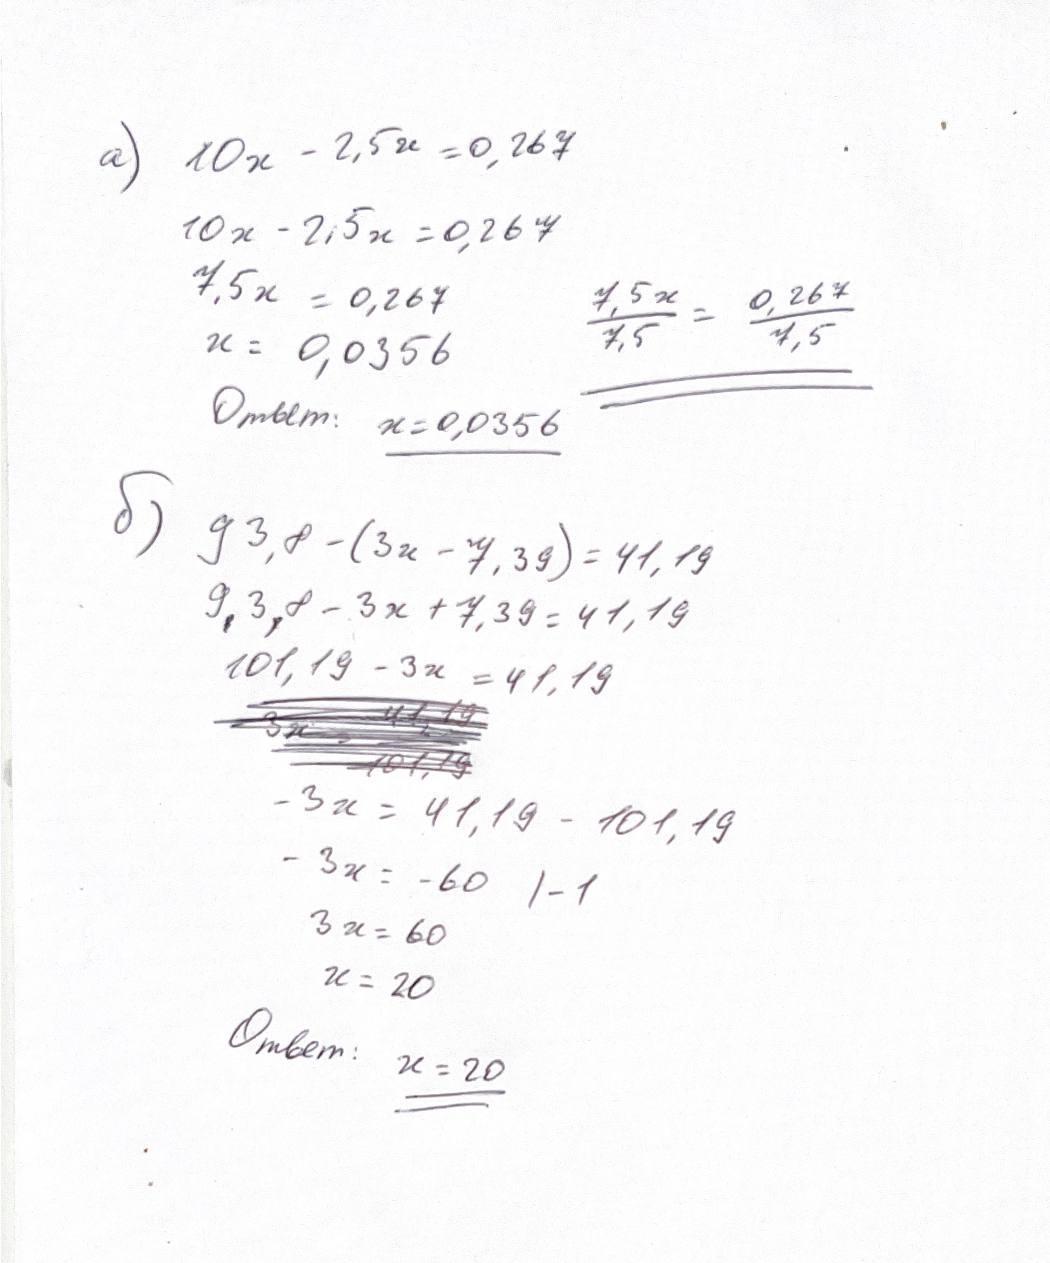 а) 10x - 2,5x = 0,267
10x - 2,5x = 0,267
7,5x = 0,267
7,5x/7,5 = 0,267/7,5
x = 0,0356
Ответ: x = 0,0356
б) 93,8 - (3x - 7,39) = 41,19
9,3,8 - 3x + 7,39 = 41,19
101,19 - 3x = 41,19
3x = 41,19
101,19
-3x = 41,19 - 101,19
-3x = -60 /-1
3x = 60
x = 20
Ответ: x = 20